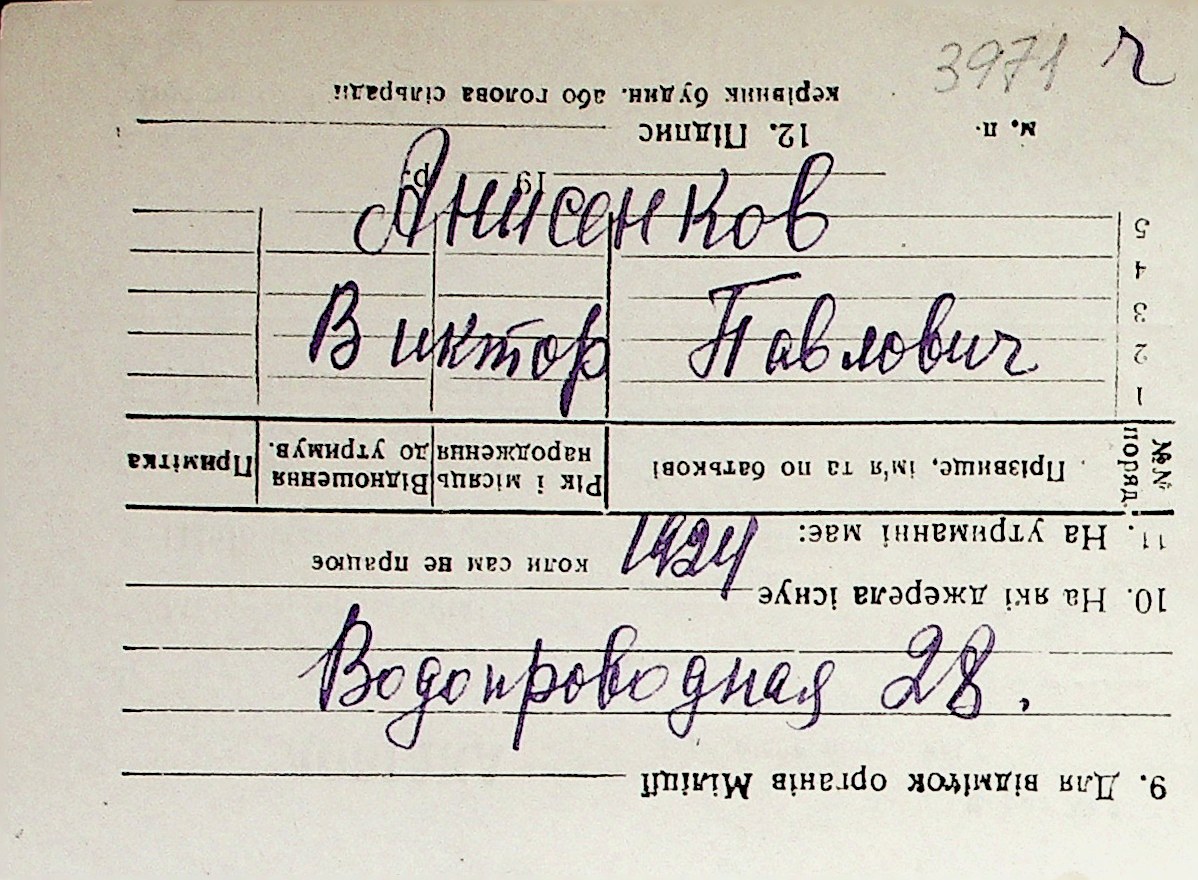 3971
Анисенков
Виктор Павлович
1924
Водопроводная 28.
9. Для відміток органів Міліції
10. На які джерела існує
коли сам не працює
11. На утриманні має:
№№ поряд.
Прізвище, ім'я та по батькові
Рік і місяць народження
Відношення до утримув.
Примітка
1
2
3
4
5
19 р.
м. п. 12. Підпис
керівник будин. або голова сільради